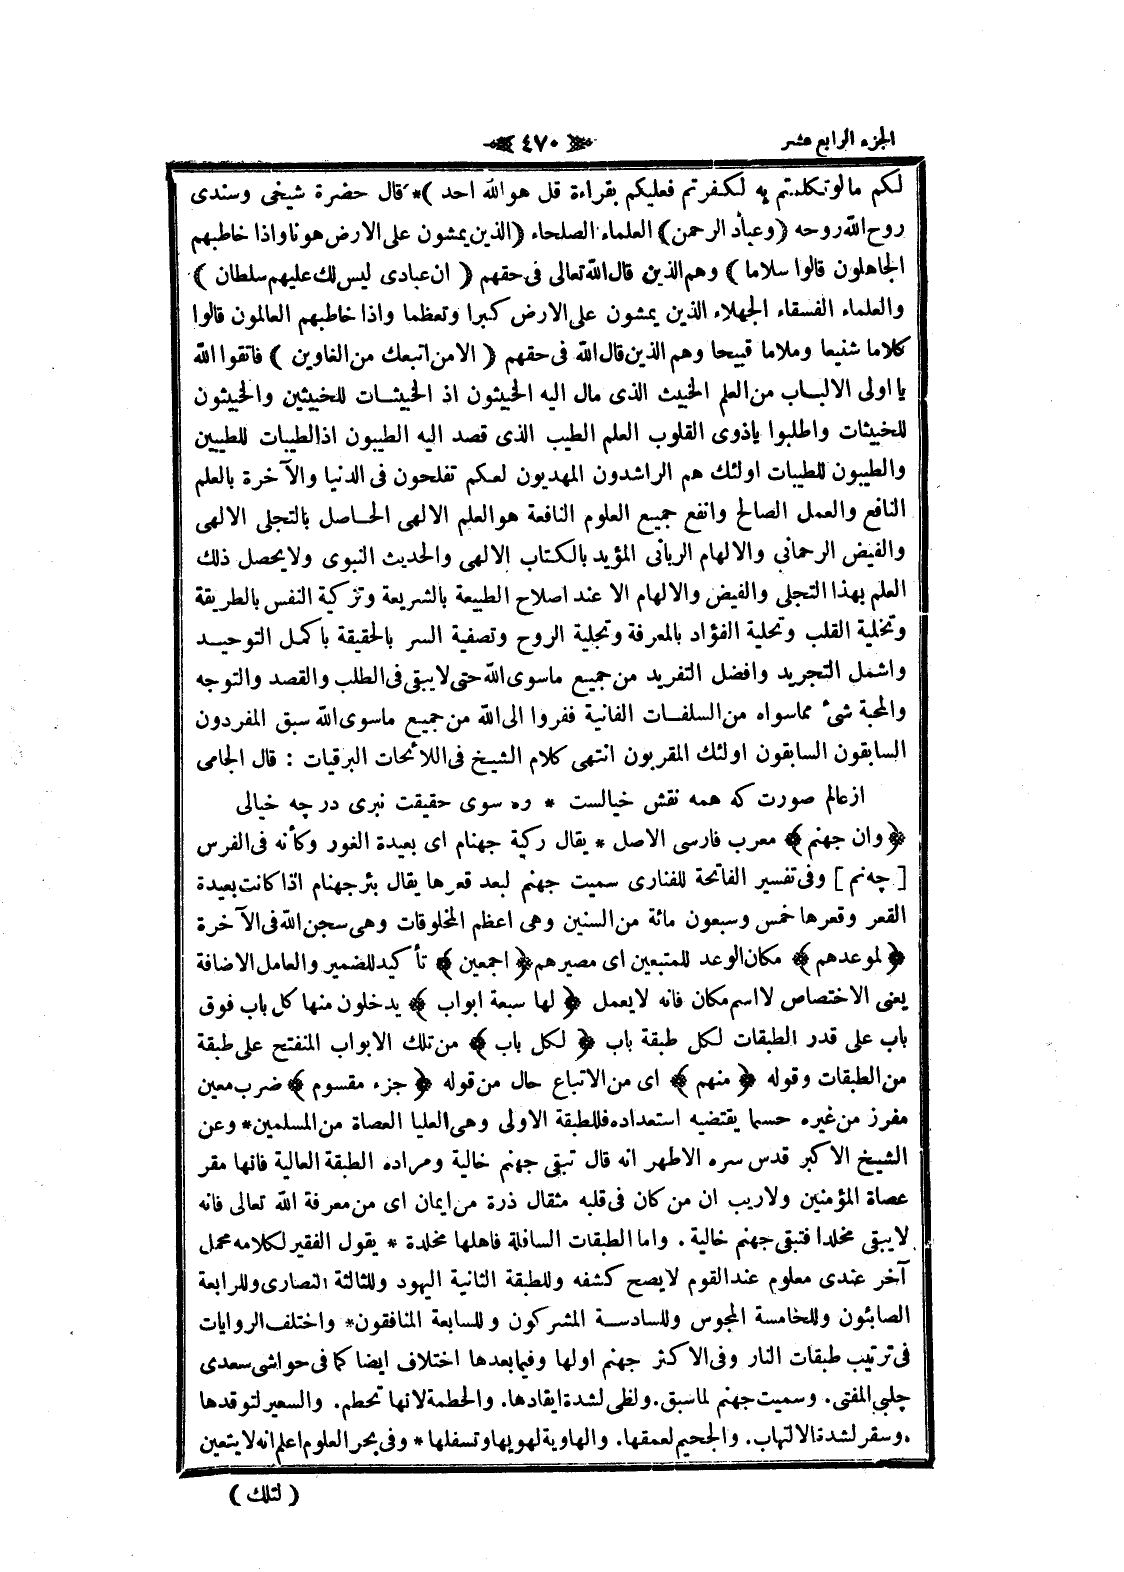 الجزء الرابع عشر
﴿ ٤٧٠ ﴾
لكم ما لو تكلمتم به لكفرتم فعليكم بقراءة قل هو الله احد )* قال حضرة شيخى وسندى
روح الله روحه ( وعباد الرحمن ) العلماء الصلحاء ( الذين يمشون على الارض هونا واذا خاطبهم
الجاهلون قالوا سلاما ) وهم الذين قال الله تعالى فى حقهم ( ان عبادى ليس لك عليهم سلطان )
والعلماء الفسقاء الجهلاء الذين يمشون على الارض كبرا وتعظما واذا خاطبهم العالمون قالوا
كلاما شنيعا وملاما قبيحا وهم الذين قال الله فى حقهم ( الا من اتبعك من الغاوين ) فاتقوا الله
يا اولى الالباب من العلم الخبيث الذى مال اليه الخبيثون اذ الخبيثات للخبيثين والخبيثون
للخبيثات واطلبوا ياذوى القلوب العلم الطيب الذى قصد اليه الطيبون اذ الطيبات للطيبين
والطيبون للطيبات اولئك هم الراشدون المهديون لعكم تفلحون فى الدنيا والآخرة بالعلم
النافع والعمل الصالح وانفع جميع العلوم النافعة هو العلم الالهى الحاصل بالتجلى الالهى
والفيض الرحمانى والالهام الربانى المؤيد بالكتاب الالهى والحديث النبوى ولا يحصل ذلك
العلم بهذا التجلى والفيض والالهام الا عند اصلاح الطبيعة بالشريعة وتزكية النفس بالطريقة
وتخلية القلب وتحلية الفؤاد بالمعرفة وتجلية الروح وتصفية السر بالحقيقة باكمل التوحيد
واشمل التجريد وافضل التفريد من جميع ماسوى الله حتى لا يبقى فى الطلب والقصد والتوجه
والمحبة شىء مماسواه من السلفات الفانية ففروا الى الله من جميع ماسوى الله سبق المفردون
السابقون السابقون اولئك المقربون انتهى كلام الشيخ فى اللائحات البرقيات : قال الجامى
از عالم صورت كه همه نقش خيالست * ره سوى حقيقت نبرى در چه خيالى
﴿ وان جهنم ﴾ معرب فارسى الاصل * يقال ركية جهنام اى بعيدة الغور وكأنه فى الفرس
[ چه نم ] وفى تفسير الفاتحة للفنارى سميت جهنم لبعد قعرها يقال بئر جهنام اذا كانت بعيدة
القعر وقعرها خمس وسبعون مائة من السنين وهى اعظم المخلوقات وهى سجن الله فى الآخرة
﴿ لموعدهم ﴾ مكان الوعد للمتبعين اى مصيرهم ﴿ اجمعين ﴾ تأكيد للضمير والعامل الاضافة
يعنى الاختصاص لا اسم مكان فانه لايعمل ﴿ لها سبعة ابواب ﴾ يدخلون منها كل باب فوق
باب على قدر الطبقات لكل طبقة باب ﴿ لكل باب ﴾ من تلك الابواب المنفتح على طبقة
من الطبقات وقوله ﴿ منهم ﴾ اى من الاتباع حال من قوله ﴿ جزء مقسوم ﴾ ضرب معين
مفرز من غيره حسبما يقتضيه استعداده فللطبقة الاولى وهى العليا العصاة من المسلمين * وعن
الشيخ الاكبر قدس سره الاطهر انه قال تبقى جهنم خالية ومراده الطبقة العالية فانها مقر
عصاة المؤمنين ولاريب ان من كان فى قلبه مثقال ذرة من ايمان اى من معرفة الله تعالى فانه
لا يبقى مخلدا فتبقى جهنم خالية . واما الطبقات السافلة فاهلها مخلدة * يقول الفقير لكلامه محمل
آخر عندى معلوم عند القوم لايصح كشفه وللطبقة الثانية اليهود وللثالثة النصارى وللرابعة
الصابئون وللخامسة المجوس وللسادسة المشركون وللسابعة المنافقون * واختلف الروايات
فى ترتيب طبقات النار وفى الاكثر جهنم اولها وفيما بعدها اختلاف ايضا كما فى حواشى سعدى
چلبى المفتى . وسميت جهنم لما سبق . ولظى لشدة ايقادها . والحطمة لانها تحطم . والسعير لتوقدها
. وسقر لشدة الالتهاب . والجحيم لعمقها . والهاوية لهويها وتسفلها * وفى بحر العلوم اعلم انه لا يتعين
( لتلك )